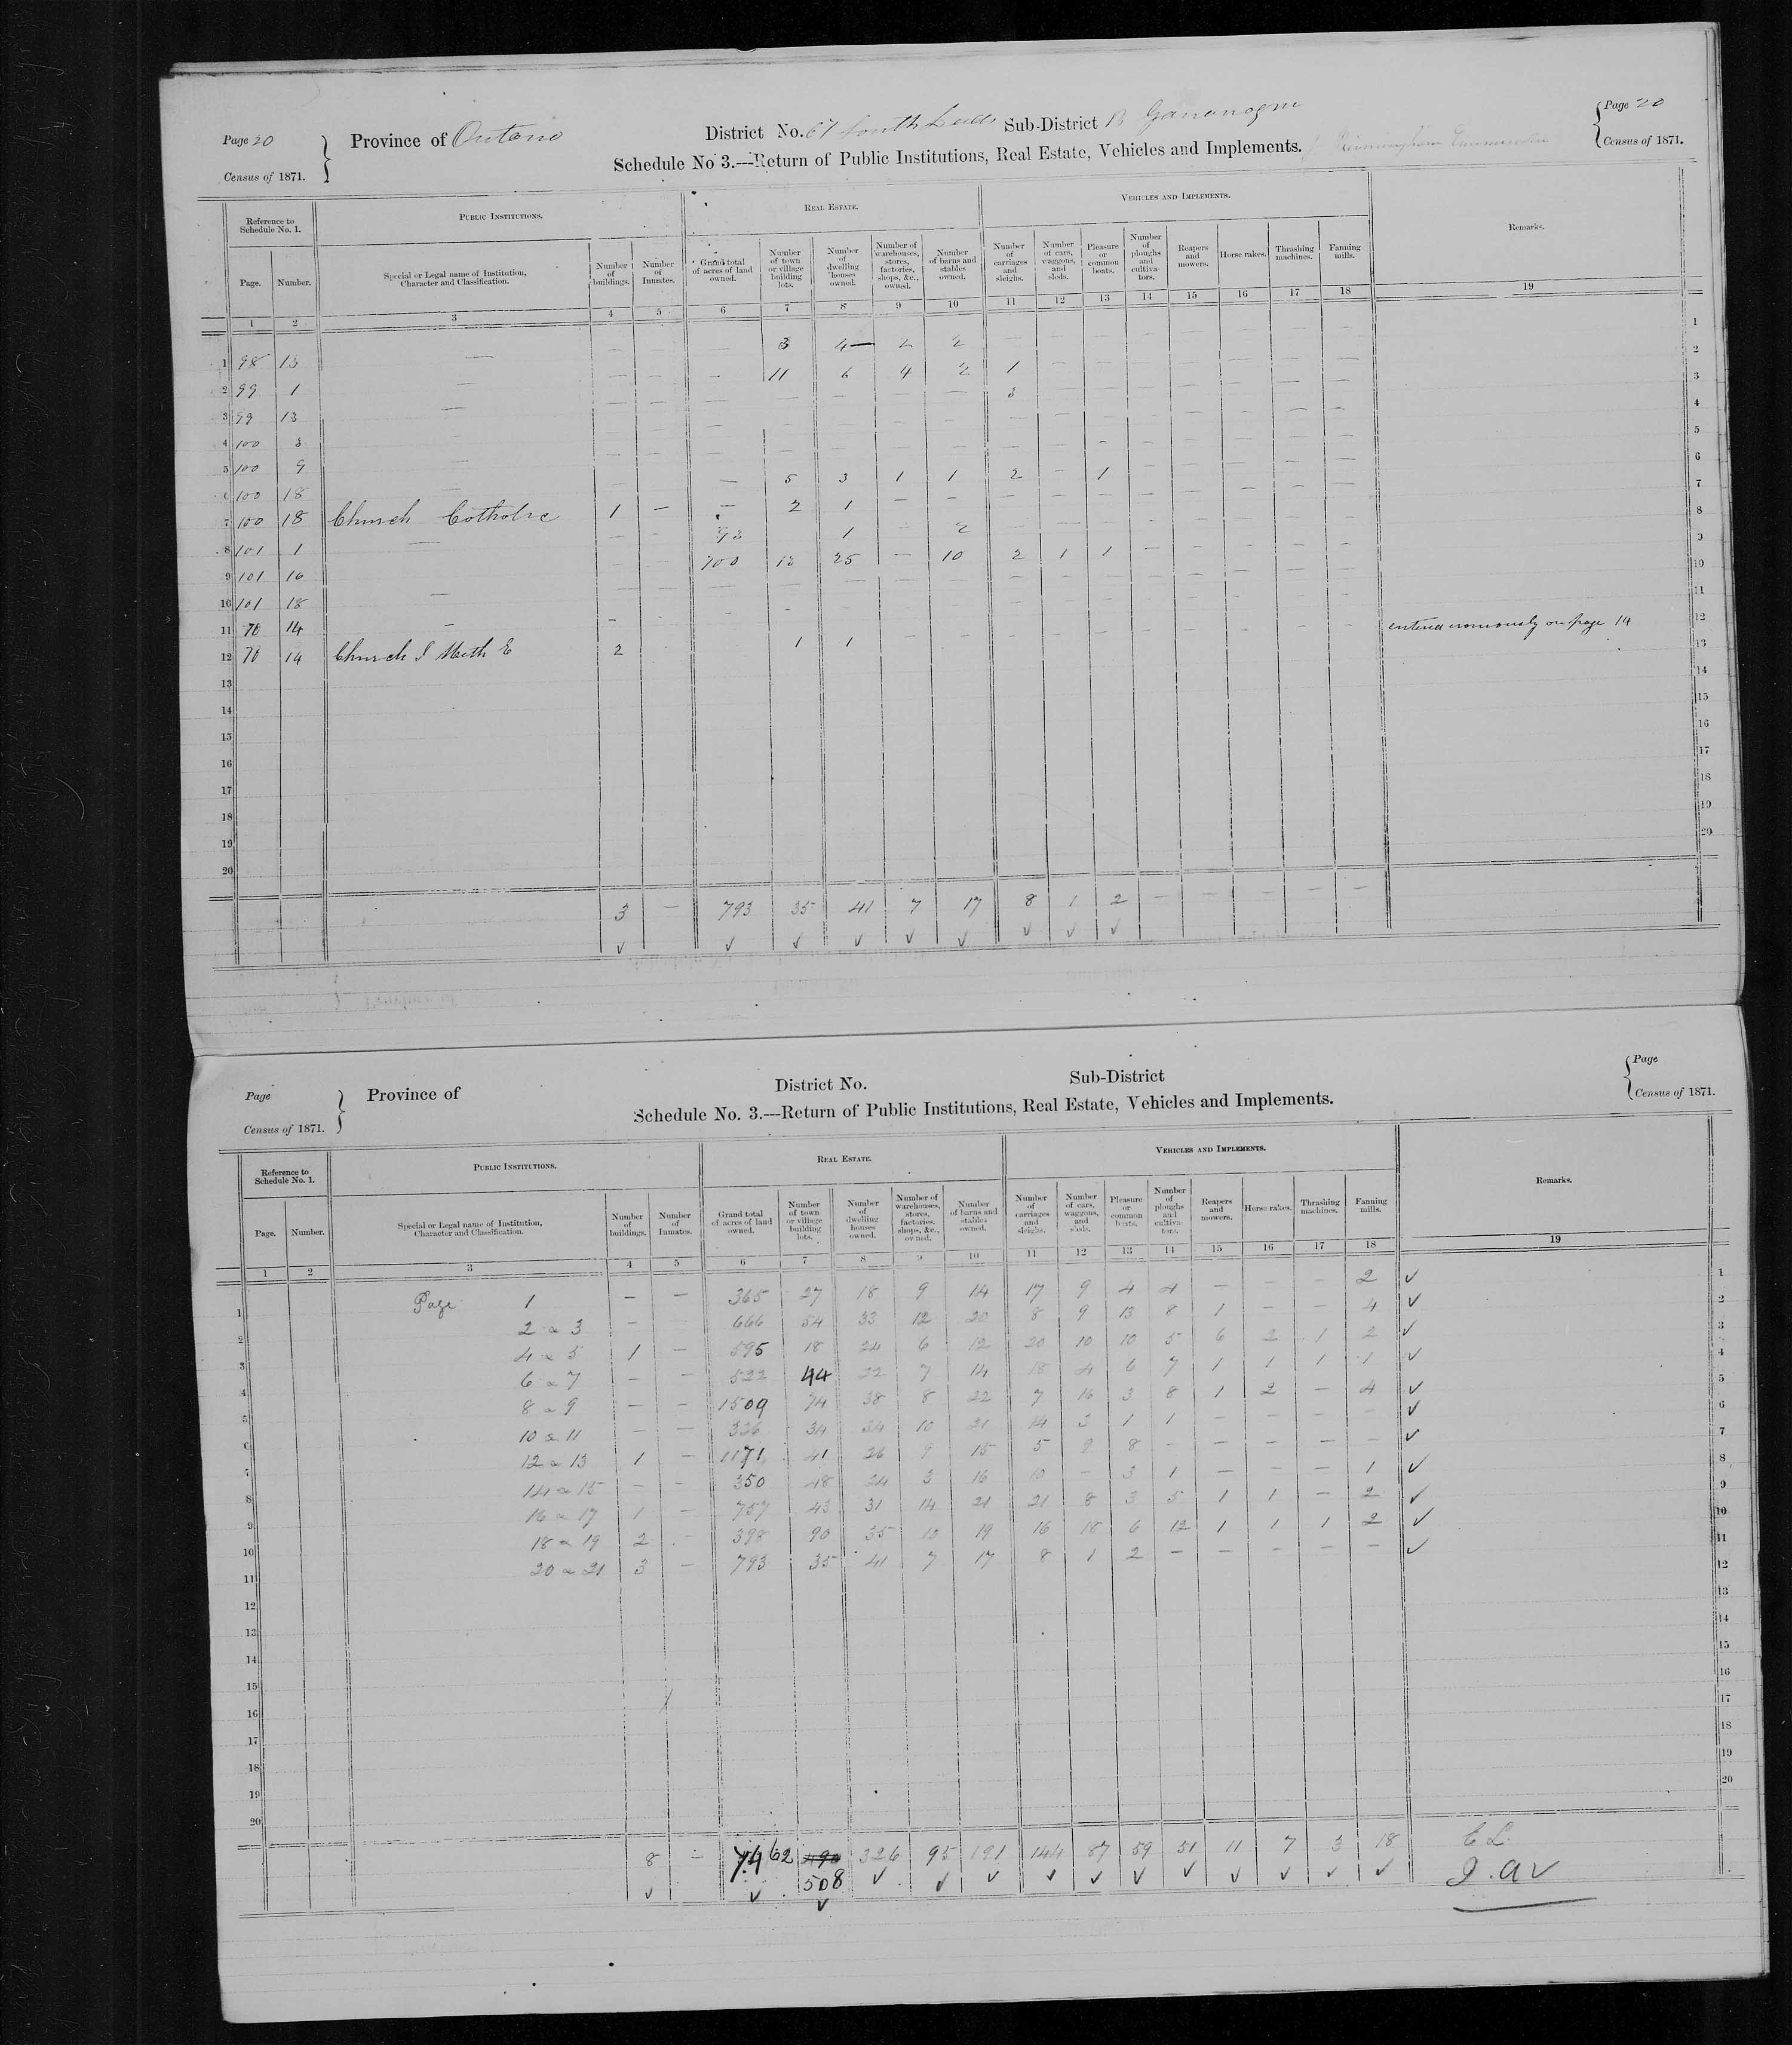 Page 20
Census of 1871.
Province of Ontario
District No. 67 South Leeds Sub-District B Gananoque
Page 20
Census of 1871.
Schedule No 3.---Return of Public Institutions, Real Estate, Vehicles and Implements.
Reference to Schedule No. 1.
Public Institutions.
Real Estate.
Vehicles and Implements.
Remarks.
Page. Number. Special or Legal name of Institution, Character and Classification. Number of buildings. Number of Inmates. Grand total of acres of land owned. Number of town or village building lots. Number of dwelling houses owned. Number of warehouses, stores, factories, shops, &c., owned. Number of barns and stables owned. Number of carriages and sleighs. Number of cars, waggons, and sleds. Pleasure or common boats. Number of ploughs and cultivators. Reapers and mowers. Horse rakes. Thrashing machines. Fanning mills.
1 2 3 4 5 6 7 8 9 10 11 12 13 14 15 16 17 18 19
1 98 13 — — — 3 4 2 2 — — — — — — — — 1
2 99 1 — — — — 11 6 4 2 1 — — — — — — — 2
3 99 13 — — — — — — — — 3 — — — — — — — 3
4 100 3 — — — — — — — — — — — — — — — — 4
5 100 9 — — — — — — — — — — — — — — — — 5
6 100 18 — — — 5 3 1 1 2 — 1 — — — — — 6
7 100 18 Church Catholic 1 — — 2 1 — — — — — — — — — — 7
8 101 1 — — — 93 1 — 2 — — — — — — — — 8
9 101 16 — — 700 13 25 — 10 2 1 1 — — — — — 9
10 101 18 — — — — — — — — — — — — — — — — 10
11 70 14 — — — — — — — — — — — — — — 11
12 70 14 Church S Meth E 2 1 1 — — — — — — — — — entered erroneously on page 14 12
13 13
14 14
15 15
16 16
17 17
18 18
19 19
20 20
3 — 793 35 41 7 17 8 1 2 — — — — —
✓ ✓ ✓ ✓ ✓ ✓ ✓ ✓ ✓
Page
Census of 1871.
Province of
District No.
Sub-District
Page
Census of 1871.
Schedule No. 3.---Return of Public Institutions, Real Estate, Vehicles and Implements.
Reference to Schedule No. 1.
Public Institutions.
Real Estate.
Vehicles and Implements.
Remarks.
Page. Number. Special or Legal name of Institution, Character and Classification. Number of buildings. Number of Inmates. Grand total of acres of land owned. Number of town or village building lots. Number of dwelling houses owned. Number of warehouses, stores, factories, shops, &c., owned. Number of barns and stables owned. Number of carriages and sleighs. Number of cars, waggons, and sleds. Pleasure or common boats. Number of ploughs and cultivators. Reapers and mowers. Horse rakes. Thrashing machines. Fanning mills.
1 2 3 4 5 6 7 8 9 10 11 12 13 14 15 16 17 18 19
1 Page 1 — — 365 27 18 9 14 17 9 4 4 — — — 2 ✓ 1
2 2 & 3 — — 666 54 33 12 20 8 9 13 8 1 — — 4 ✓ 2
3 4 & 5 1 — 595 18 24 6 12 20 10 10 5 6 2 1 2 ✓ 3
4 6 & 7 — — 522 44 22 7 14 18 4 6 7 1 1 1 1 ✓ 4
5 8 & 9 — — 1509 74 38 8 22 7 16 3 8 1 2 — 4 ✓ 5
6 10 & 11 — — 336 34 34 10 21 14 3 1 1 — — — — ✓ 6
7 12 & 13 1 — 1171 41 26 9 15 5 9 8 — — — — — ✓ 7
8 14 & 15 — — 350 48 24 3 16 10 — 3 1 — — — 1 ✓ 8
9 16 & 17 1 — 757 43 31 14 21 21 8 3 5 1 1 — 2 ✓ 9
10 18 & 19 2 — 398 90 35 10 19 16 18 6 12 1 1 1 2 ✓ 10
11 20 & 21 3 — 793 35 41 7 17 8 1 2 — — — — — ✓ 11
12 12
13 13
14 14
15 15
16 16
17 17
18 18
19 19
20 20
8 — 7462 490 326 95 191 144 87 59 51 11 7 3 18 E L.
508
✓ ✓ ✓ ✓ ✓ ✓ ✓ ✓ ✓ ✓ ✓ ✓ ✓ ✓ J. A ✓